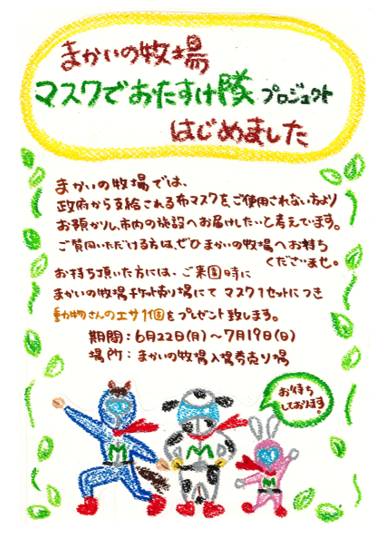 まかいの牧場
マスクでおたすけ隊 プロジェクト
はじめました
まかいの牧場では、
政府から支給される布マスクをご使用されない方より
お預かりし市内の施設へお届けしたいと考えています。
ご賛同いただける方は、ぜひまかいの牧場へお持ち
くださいませ。
お持ち頂いた方には、ご来園時に
まかいの牧場チケット売り場にて マスク1セットにつき
動物さんのエサ1個をプレゼント致します。
期間:6月22日(月)〜7月19日(日)
場所:まかいの牧場入場券売り場
お待ち
しております!
M
M
M